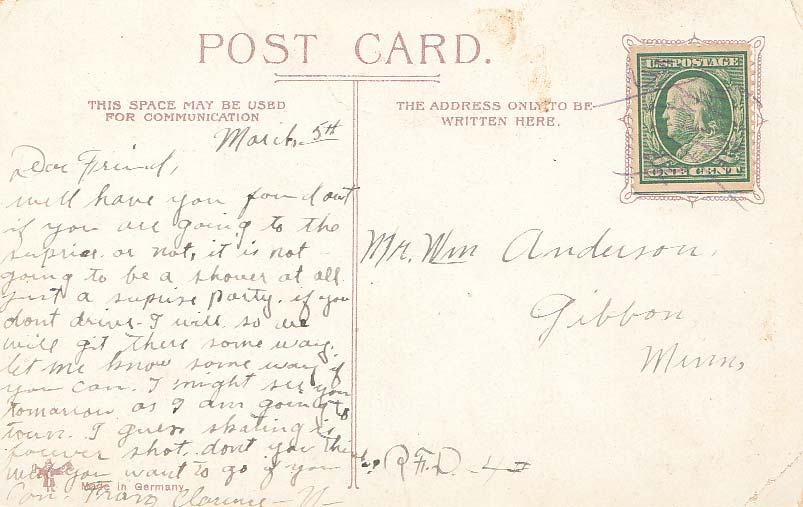 POST CARD.
THIS SPACE MAY BE USED
FOR COMMUNICATION
THE ADDRESS ONLY TO BE
WRITTEN HERE.
U.S. POSTAGE
ONE CENT
March, 5th
Dear Friend,
well have you found out
if you are going to the
suprise or not, it is not
going to be a shower at all
just a suprise party. if you
dont drive I will so we
will git there some way.
let me know some way if
you can. I might see you
tomarrow as I am going to
town. I guess skating is
forever shot. dont you think
well you want to go if you
can. From Clarence
Mr. Wm Anderson,
Gibbon,
Minn,
R.F.D. 4
Made in Germany